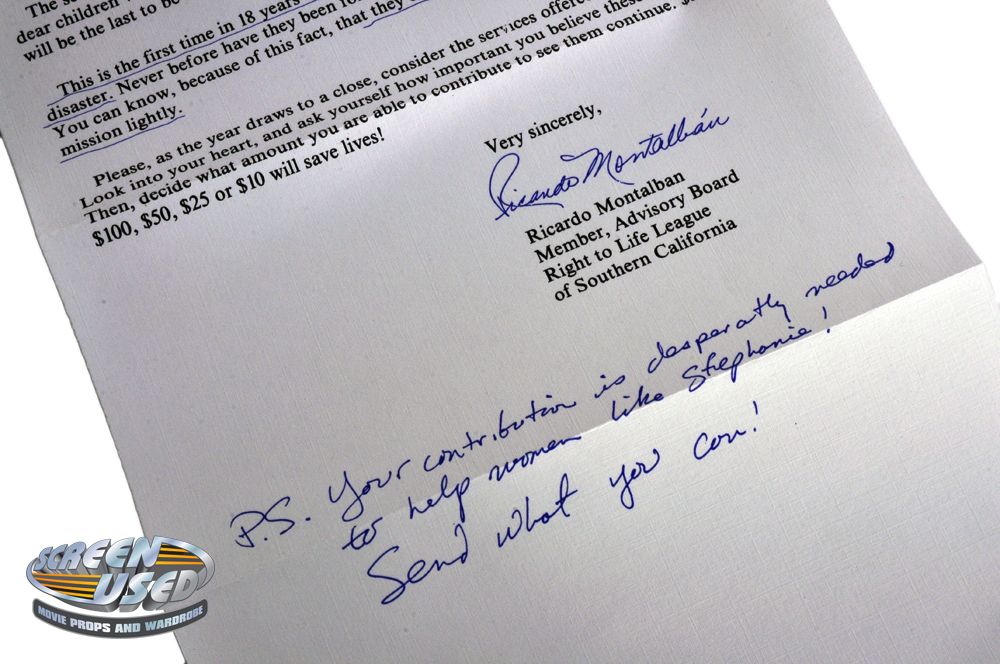 The se
dear children
will be the last to be
This is the first time in 18 years
disaster. Never before have they been
You can know, because of this fact, that they
mission lightly.
Please, as the year draws to a close, consider the services offere
Look into your heart, and ask yourself how important you believe these
Then, decide what amount you are able to contribute to see them continue.
$100, $50, $25 or $10 will save lives!
Very sincerely,
Ricardo Montalbán
Ricardo Montalban
Member, Advisory Board
Right to Life League
of Southern California
P.S. Your contribution is desperatly needed
to help women like Stephanie!
Send what you can!
SCREEN
USED
MOVIE PROPS AND WARDROBE